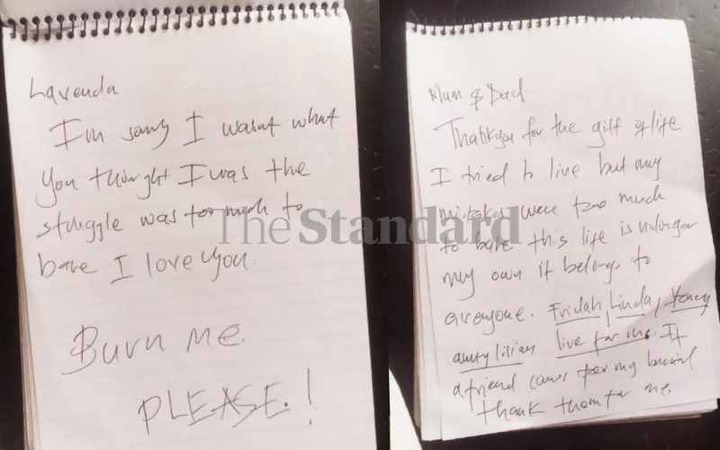 Lavenda
I'm sorry I wasnt what
you thought I was the
struggle was too much to
bare I love you.
Burn me.
PLEASE.!
Mum & Dad
Thankyou for the gift of life
I tried to live but my
mistakes were too much
to bare this life is nolonger
my own it belongs to
everyone. Fridah, Linda,
aunty lilian live for me. If
a friend comes for my burial
thank them for me.
The Standard